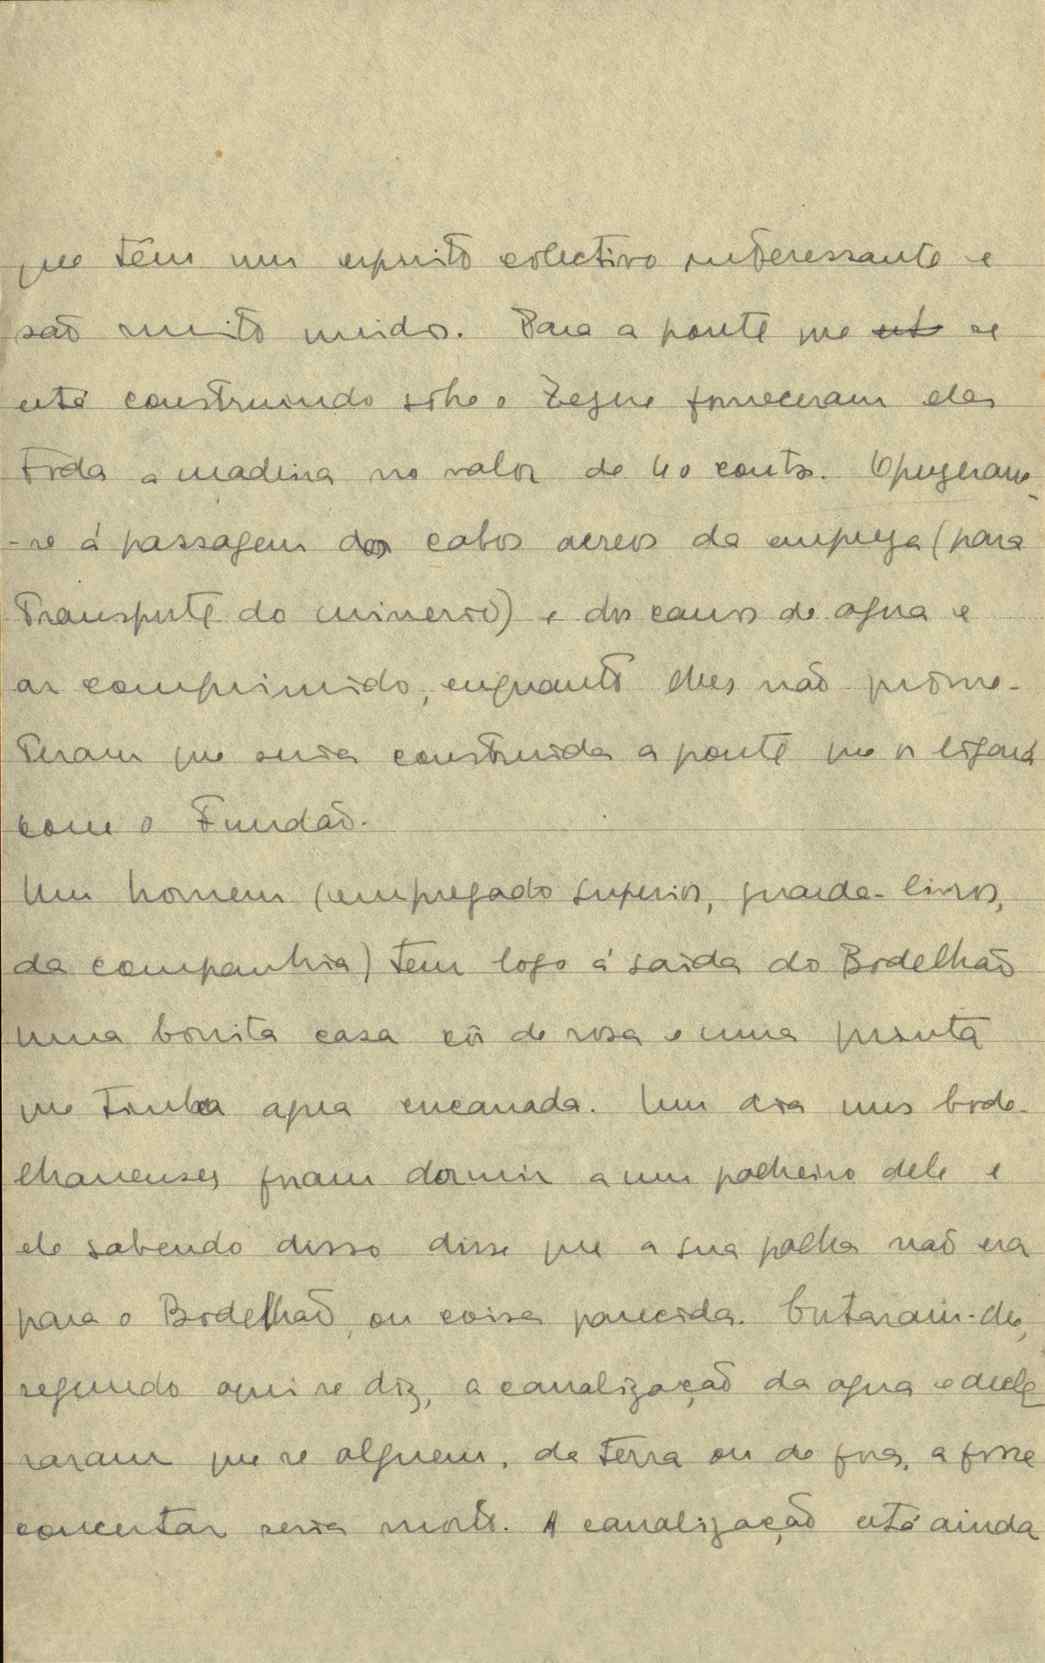 que têm um espirito colectivo interessante e
são muito unidos. Para a ponte que está se
está construindo sôbre o Zezere forneceram eles
tôda a madeira no valor de 40 contos. Opuzeram-
-se á passagem dos cabos aereos da empreza (para
transporte do minerio) e dos canos de agua e
ar comprimido, enquanto lhes não prome-
teram que seria construida a ponte que os ligará
com o Fundão.
Um homem (empregado superior, guarda-livros,
da companhia) tem logo á saida do Bodelhão
uma bonita casa côr de rosa e uma
que tinha agua encanada. Um dia uns bode-
lhanenses foram dormir a um palheiro dele e
ele sabendo disso disse que a sua palha não era
para o Bodelhão, ou coisa parecida. Cortaram-lhe,
segundo aqui se diz, a canalização da agua e decla
raram que se alguem, da terra ou de fora, a fosse
concertar seria morto. A canalização está ainda